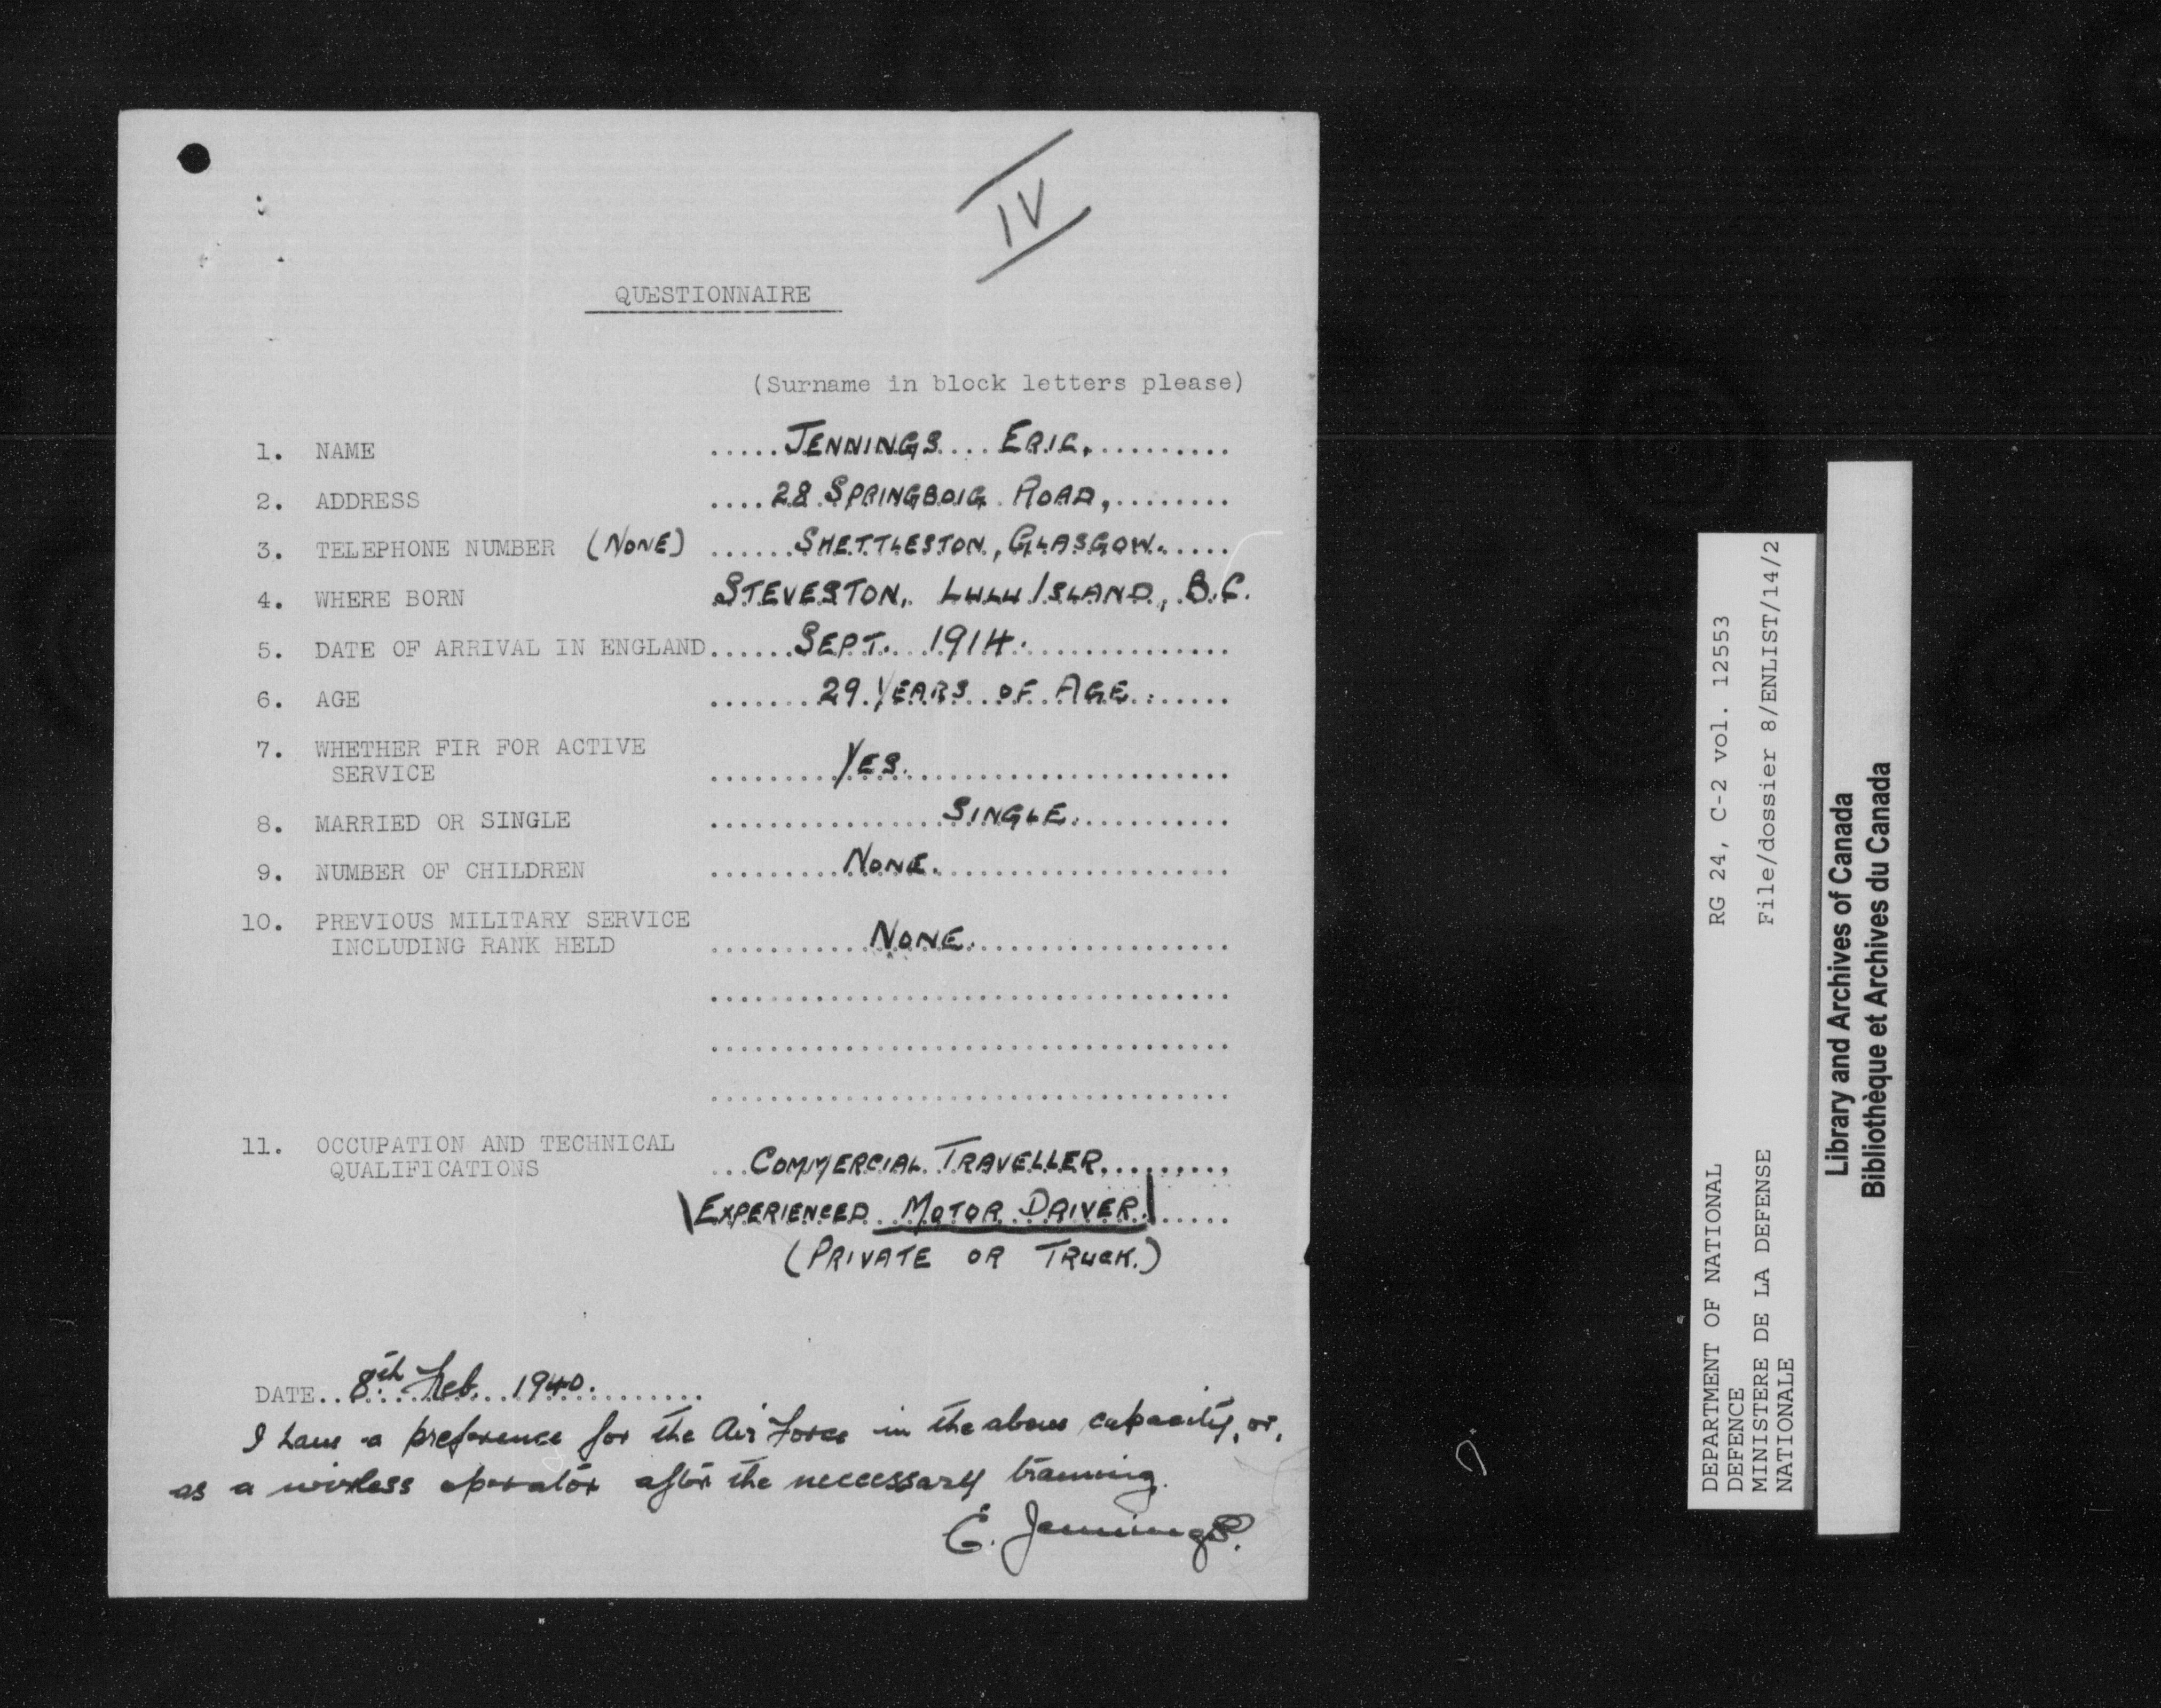 IV
QUESTIONNAIRE
(Surname in block letters please)
1. NAME .....JENNINGS....ERIC,..........
2. ADDRESS ....28.SPRINGBOIG.ROAD,........
3. TELEPHONE NUMBER (NONE) ......SHETTLESTON, GLASGOW......
4. WHERE BORN STEVESTON, LULU ISLAND, B.C.
5. DATE OF ARRIVAL IN ENGLAND......SEPT....1914................
6. AGE .......29.YEARS..OF.AGE.......
7. WHETHER FIR FOR ACTIVE
SERVICE .........YES......................
8. MARRIED OR SINGLE ................SINGLE...........
9. NUMBER OF CHILDREN .........NONE.....................
10. PREVIOUS MILITARY SERVICE
INCLUDING RANK HELD ...........NONE..................
...................................
...................................
...................................
11. OCCUPATION AND TECHNICAL
QUALIFICATIONS ...COMMERCIAL.TRAVELLER.........
EXPERIENCED MOTOR DRIVER......
(PRIVATE OR TRUCK.)
DATE..8th Feb. 1940.........
I have a preference for the Air Force in the above capacity, or,
as a wireless operator after the neccessary training.
E. Jennings.
DEPARTMENT OF NATIONAL
DEFENCE
MINISTERE DE LA DEFENSE
NATIONALE
RG 24, C-2 vol. 12553
File/dossier 8/ENLIST/14/2
Library and Archives of Canada
Bibliothèque et Archives du Canada